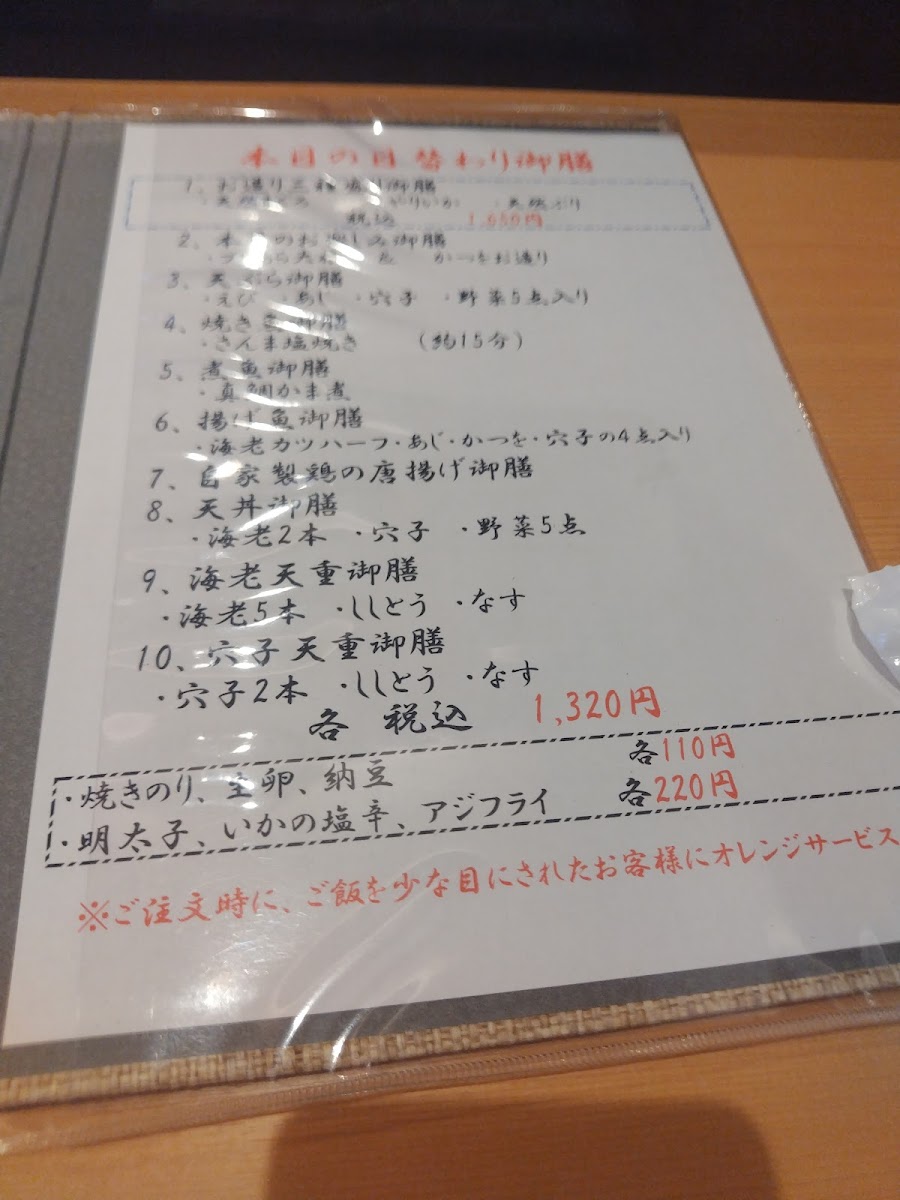 本日の日替わり御膳
1、お造り三種盛り御膳
・天然まぐろ ・やりいか ・天然ぶり
税込 1,650円
2、本日のお楽しみ御膳
かつをお造り
3、天ぷら御膳
・えび ・あじ ・穴子 ・野菜5点入り
4、焼き魚御膳
・さんま塩焼き (約15分)
5、煮魚御膳
・真鯛かま煮
6、揚げ魚御膳
・海老カツハーフ・あじ・かつを・穴子の4点入り
7、自家製鶏の唐揚げ御膳
8、天丼御膳
・海老2本 ・穴子 ・野菜5点
9、海老天重御膳
・海老5本 ・ししとう ・なす
10、穴子天重御膳
・穴子2本 ・ししとう ・なす
各 税込 1,320円
・焼きのり、生卵、納豆 各110円
・明太子、いかの塩辛、アジフライ 各220円
※ご注文時に、ご飯を少な目にされたお客様にオレンジサービス